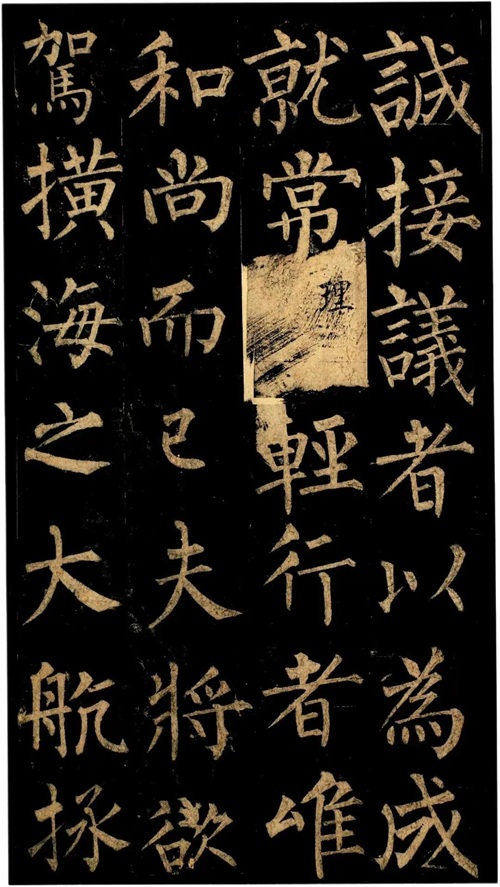 誠接議者以為成
就常理輕行者唯
和尚而已夫將欲
駕橫海之大航拯